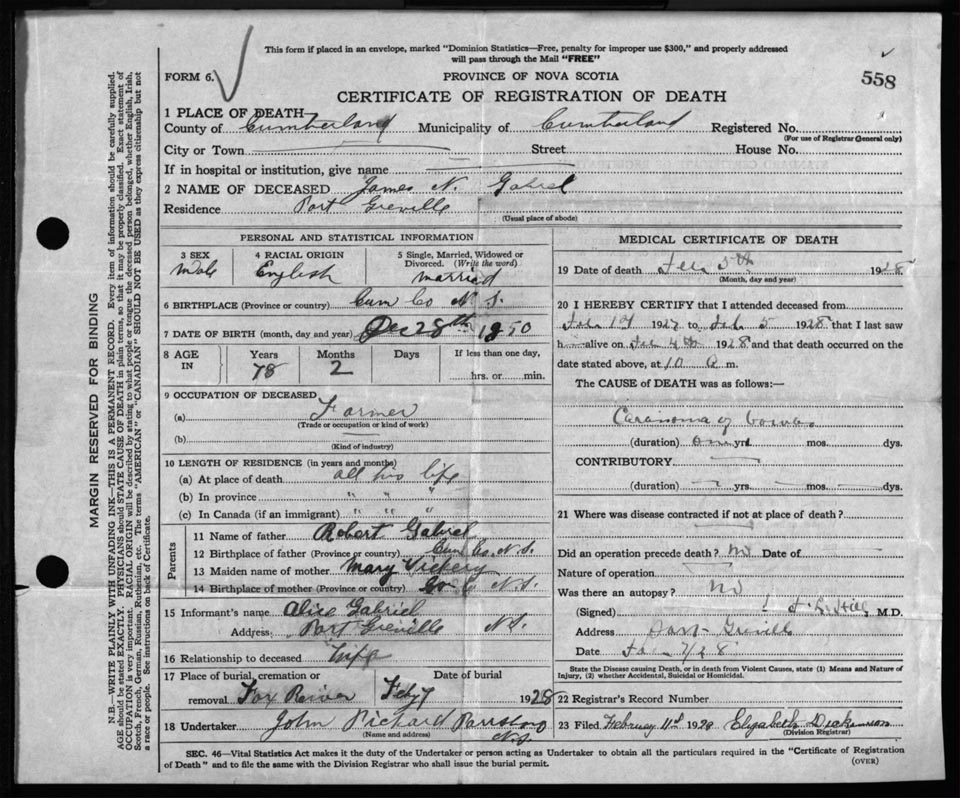 This form if placed in an envelope, marked "Dominion Statistics—Free, penalty for improper use $300," and properly addressed
will pass through the Mail "FREE"
FORM 6.
PROVINCE OF NOVA SCOTIA
558
CERTIFICATE OF REGISTRATION OF DEATH
1 PLACE OF DEATH
County of Cumberland Municipality of Cumberland Registered No.
(For use of Registrar General only)
City or Town Street House No.
If in hospital or institution, give name
2 NAME OF DECEASED James N. Gabriel
Residence Port Greville
(Usual place of abode)
PERSONAL AND STATISTICAL INFORMATION
3 SEX 4 RACIAL ORIGIN 5 Single, Married, Widowed or
Divorced. (Write the word)
Male English married
6 BIRTHPLACE (Province or country) Cum Co N S.
7 DATE OF BIRTH (month, day and year) Dec 28th 1850
8 AGE IN Years Months Days If less than one day,
78 2 hrs. or min.
9 OCCUPATION OF DECEASED
(a) Farmer
(Trade or occupation or kind of work)
(b)
(Kind of industry)
10 LENGTH OF RESIDENCE (in years and months)
(a) At place of death all his life
(b) In province " " "
(c) In Canada (if an immigrant) " " "
Parents
11 Name of father Robert Gabriel
12 Birthplace of father (Province or country) Cum Co. N.S.
13 Maiden name of mother Mary Vickery
14 Birthplace of mother (Province or country) N.S.
15 Informant's name Alice Gabriel
Address: Port Greville N.S.
16 Relationship to deceased Wife
17 Place of burial, cremation or Date of burial
removal Fox River Feby 7 1928
18 Undertaker John Richard Parrsboro
(Name and address) N.S.
MEDICAL CERTIFICATE OF DEATH
19 Date of death Feb 5th 1928
(Month, day and year)
20 I HEREBY CERTIFY that I attended deceased from
Feb 1927 to Feb 5 1928 that I last saw
h alive on Feb 4th 1928 and that death occurred on the
date stated above, at 10 a m.
The CAUSE of DEATH was as follows:—
Carcinoma of
(duration) yrs. mos. dys.
CONTRIBUTORY
(duration) yrs. mos. dys.
21 Where was disease contracted if not at place of death?
Did an operation precede death? no Date of
Nature of operation
Was there an autopsy? no
(Signed) M.D.
Address Port Greville
Date Feb 7/28
State the Disease causing Death, or in death from Violent Causes, state (1) Means and Nature of
Injury, (2) whether Accidental, Suicidal or Homicidal.
22 Registrar's Record Number
23 Filed February 11th 1928 Elizabeth Dickinson
(Division Registrar)
SEC. 46—Vital Statistics Act makes it the duty of the Undertaker or person acting as Undertaker to obtain all the particulars required in the "Certificate of Registration
of Death" and to file the same with the Division Registrar who shall issue the burial permit.
(OVER)
MARGIN RESERVED FOR BINDING
N.B.—WRITE PLAINLY WITH UNFADING INK—THIS IS A PERMANENT RECORD. Every item of information should be carefully supplied.
AGE should be stated EXACTLY. PHYSICIANS should STATE CAUSE OF DEATH in plain terms, so that it may be properly classified. Exact statement of
OCCUPATION is very important. RACIAL ORIGIN will be described by stating to what people or tongue the deceased person belonged, whether English, Irish,
Scotch, French, German, Russian, Ruthenian, etc. The terms "AMERICAN" or "CANADIAN" SHOULD NOT BE USED as they express citizenship but not
a race or people. See instructions on back of Certificate.